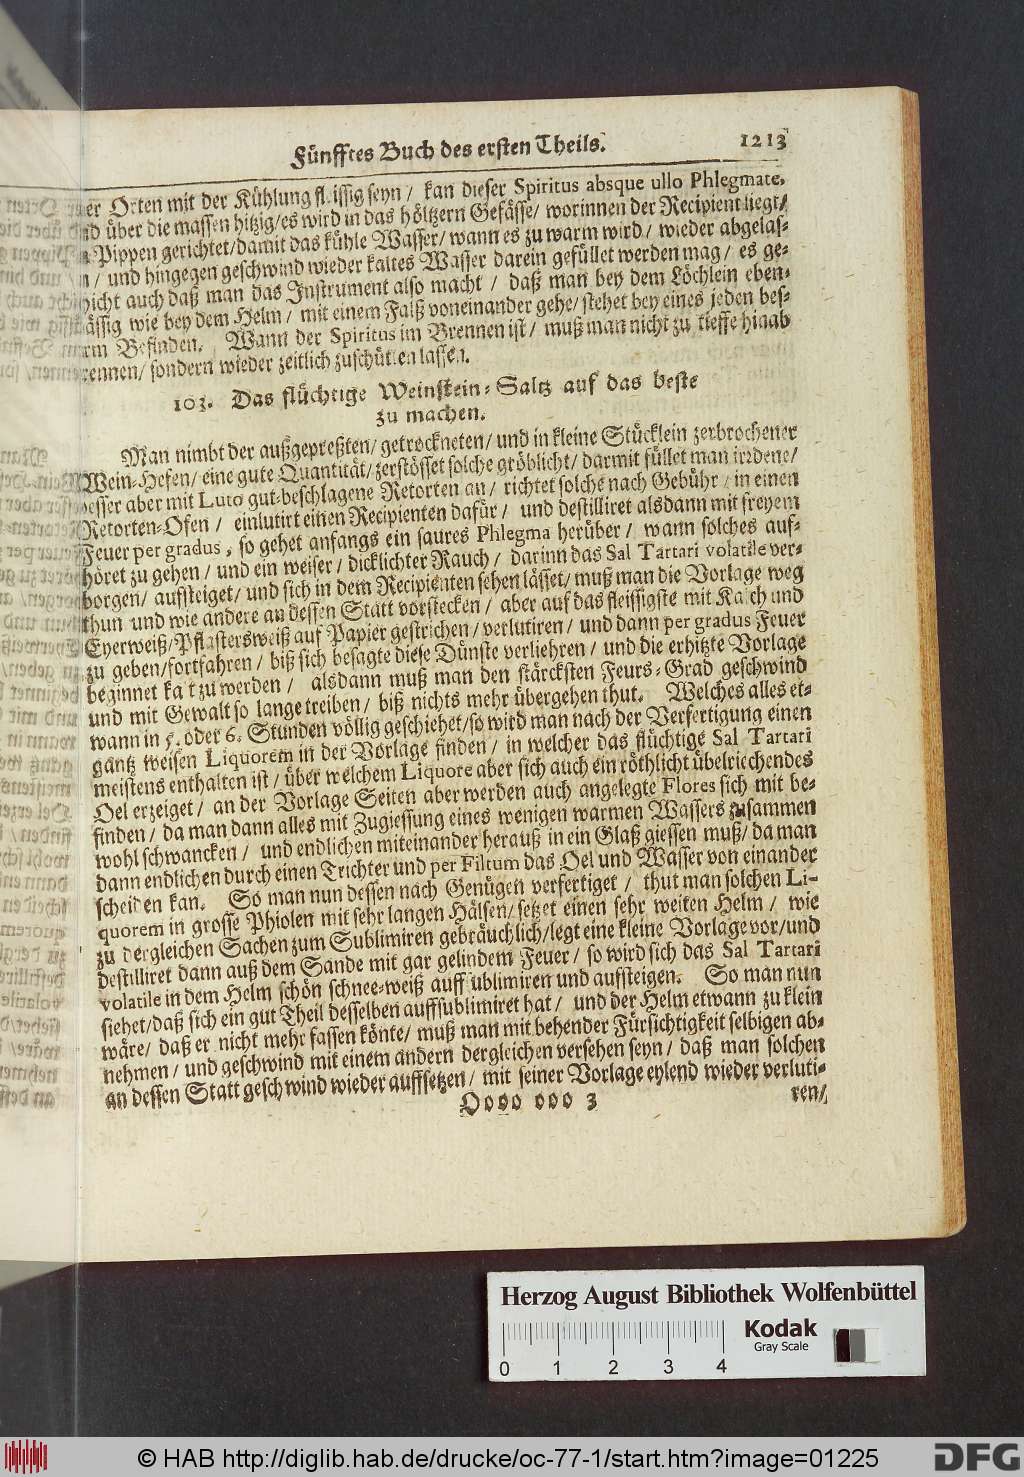 Fünfftes Buch des ersten Theils. 1213
Orten mit der Kühlung fl issig seyn / kan dieser Spiritus absque ullo Phlegmate,
über die massen hitzig/es wird in das höltzern Gefässe/ worinnen der Recipient liegt/
Pippen gerichtet/damit das kühle Wasser/ wann es zu warm wird/ wieder abgelas-
/ und hingegen geschwind wieder kaltes Wasser darein gefüllet werden mag/ es ge-
auch daß man das Instrument also macht / daß man bey dem Löchlein eben-
wie bey dem Helm / mit einem Falß voneinander gehe/stehet bey eines jeden bes-
Befinden. Wann der Spiritus im Brennen ist/ muß man nicht zu tieffe hinab
sondern wieder zeitlich zuschütten lassen.
103. Das flüchtige Weinstein-Saltz auf das beste
zu machen.
Man nimbt der außgepreßten/getrockneten/und in kleine Stücklein zerbrochener
Wein-Hefen/eine gute Quantität/zerstösset solche gröblicht/darmit füllet man irrdene/
besser aber mit Luto gut-beschlagene Retorten an/ richtet solche nach Gebühr/in einen
Retorten-Ofen / einlutirt einen Recipienten dafür / und destilliret alsdann mit freyem
Feuer per gradus, so gehet anfangs ein saures Phlegma herüber/ wann solches auf-
höret zu gehen/ und ein weiser/ dicklichter Rauch/ darinn das Sal Tartari volatile ver-
borgen/ aufsteiget/ und sich in dem Recipienten sehen lässet/muß man die Vorlage weg
thun und wie andere an dessen Statt vorstecken/ aber auf das fleissigste mit Kalch und
Eyerweiß/Pflastersweiß auf Papier gestrichen/verlutiren/ und dann per gradus Feuer
zu geben/fortfahren/ biß sich besagte diese Dünste verliehren/ und die erhitzte Vorlage
beginnet kalt zu werden / alsdann muß man den stärcksten Feurs-Grad geschwind
und mit Gewalt so lange treiben/ biß nichts mehr übergehen thut. Welches alles et-
wann in 5. oder 6. Stunden völlig geschiehet/so wird man nach der Verfertigung einen
gantz weisen Liquorem in der Vorlage finden/ in welcher das flüchtige Sal Tartari
meistens enthalten ist/ über welchem Liquore aber sich auch ein röthlicht übelriechendes
Oel erzeiget/ an der Vorlage Seiten aber werden auch angelegte Flores sich mit be-
finden/ da man dann alles mit Zugiessung eines wenigen warmen Wassers zusammen
wohl schwancken / und endlichen miteinander herauß in ein Glaß giessen muß/ da man
dann endlichen durch einen Trichter und per Filtum das Oel und Wasser von einander
scheiden kan. So man nun dessen nach Genügen verfertiget / thut man solchen Li-
quorem in grosse Phiolen mit sehr langen Hälsen/ setzet einen sehr weiten Helm / wie
zu dergleichen Sachen zum Sublimiren gebräuchlich/legt eine kleine Vorlage vor/und
destilliret dann auß dem Sande mit gar gelindem Feuer/ so wird sich das Sal Tartari
volatile in dem Helm schön schnee-weiß auffsublimiren und aufsteigen. So man nun
siehet/daß sich ein gut Theil desselben auffsublimiret hat/ und der Helm etwann zu klein
wäre/ daß er nicht mehr fassen könte/ muß man mit behender Fürsichtigkeit selbigen ab-
nehmen/ und geschwind mit einem andern dergleichen versehen seyn/ daß man solchen
an dessen Statt geschwind wieder auffsetzen/ mit seiner Vorlage eylend wieder verluti-
Oooo ooo 3 ren/
Herzog August Bibliothek Wolfenbüttel
Kodak
Gray Scale
0 1 2 3 4
© HAB http://diglib.hab.de/drucke/oc-77-1/start.htm?image=01225
DFG